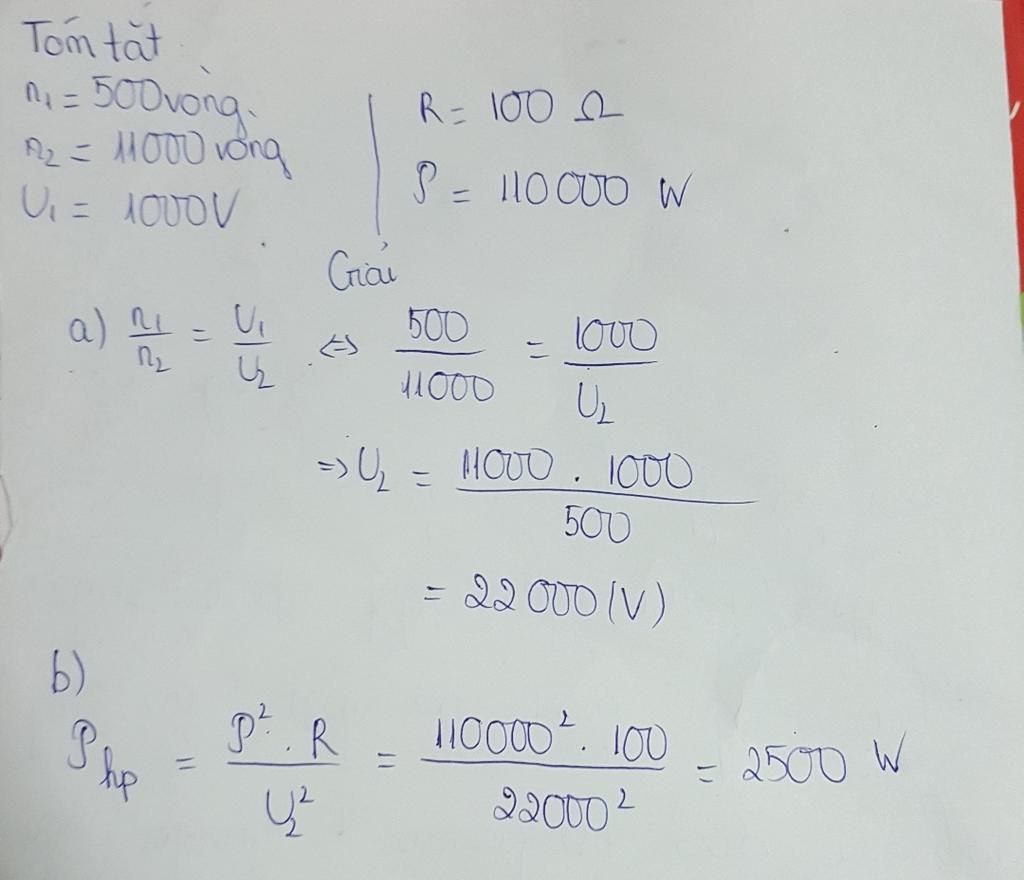 Tóm tắt
n₁ = 500 vòng.
n₂ = 11000 vòng
U₁ = 1000V
R = 100 Ω
P = 110000 W
Giải
a) n₁/n₂ = U₁/U₂ <=> 500/11000 = 1000/U₂
=> U₂ = 11000 . 1000/500
= 22000 (V)
b)
P hp = P² . R/U₂² = 110000² . 100/22000² = 2500 W